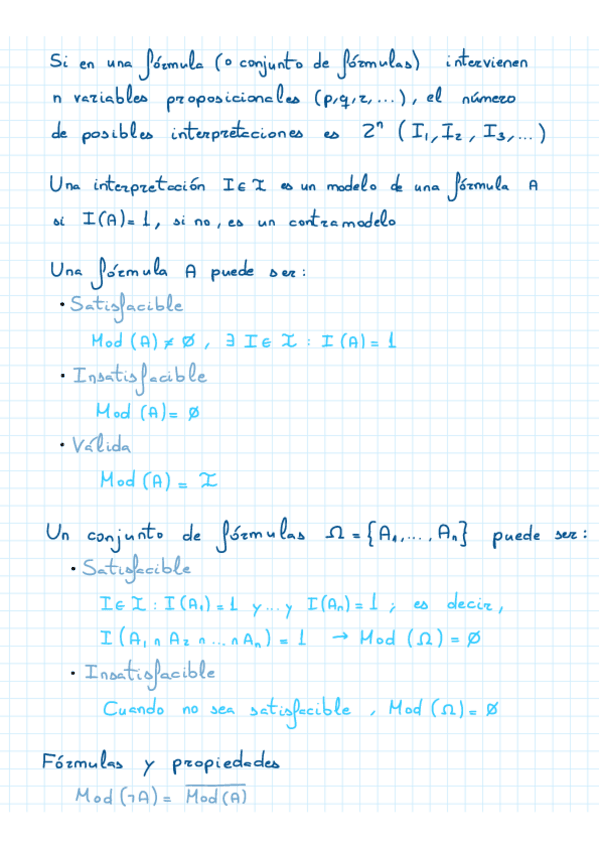 Si en una fórmula (o conjunto de fórmulas) intervienen
n variables proposicionales (p,q,r,...), el número
de posibles interpretaciones es 2ⁿ (I₁, I₂, I₃,...)
Una interpretación I∈𝓘 es un modelo de una fórmula A
si I(A)=1, si no, es un contramodelo
Una fórmula A puede ser:
• Satisfacible
Mod (A) ≠ ∅, ∃ I∈𝓘 : I(A)=1
• Insatisfacible
Mod (A)= ∅
• Válida
Mod (A) = 𝓘
Un conjunto de fórmulas Ω={A₁,...,Aₙ} puede ser:
• Satisfacible
I∈𝓘 : I(A₁)=1 y...y I(Aₙ)=1 ; es decir,
I(A₁ ∩ A₂ ∩ ... ∩ Aₙ) = 1 → Mod (Ω) = ∅
• Insatisfacible
Cuando no sea satisfacible, Mod (Ω)= ∅
Fórmulas y propiedades
Mod (¬A) = \overline{Mod (A)}